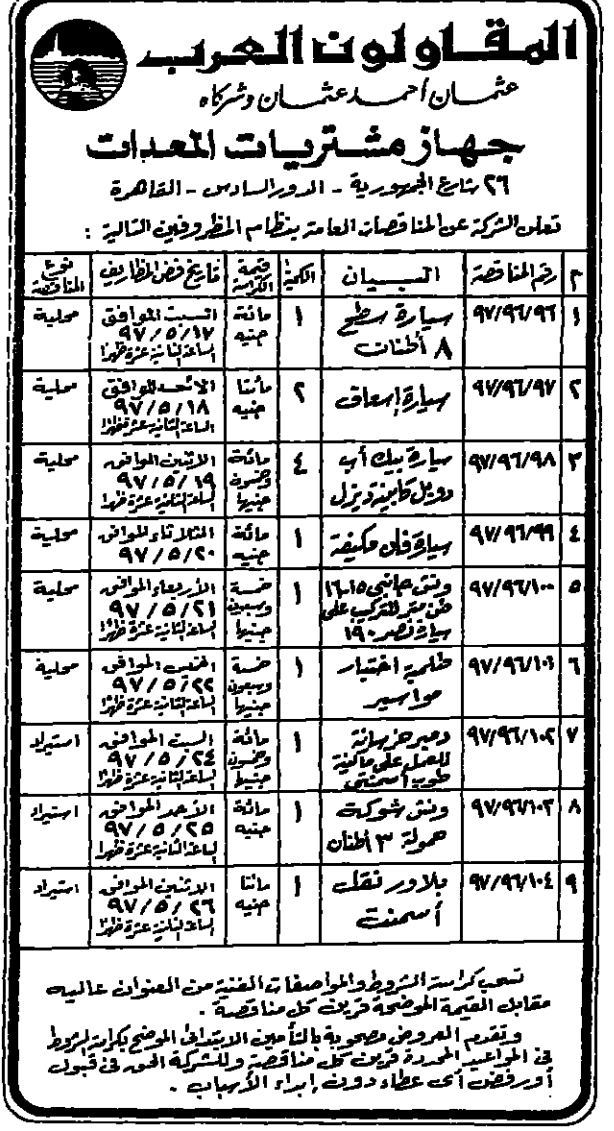 المقاولون العرب
عثمان أحمد عثمان وشركاه
جهاز مشتريات المعدات
٢٦ شارع الجمهورية - الدور السادس - القاهرة
تعلن الشركة عن المناقصات العامة بنظام المظروفين التالية :
م رقم المناقصة البيان الكمية قيمة الكراسة تاريخ فض المظاريف نوع المناقصة
١ ٩٧/٩٦/٩٦ سيارة سطح ٨ أطنان ١ مائة جنيه السبت الموافق ٩٧/٥/١٧ الساعة الثانية عشرة ظهرا محلية
٢ ٩٧/٩٦/٩٧ سيارة إسعاف ٢ مائتا جنيه الأحد الموافق ٩٧/٥/١٨ الساعة الثانية عشرة ظهرا محلية
٣ ٩٧/٩٦/٩٨ سيارة بيك أب دوبل كابينة ديزل ٤ مائة وخمسون جنيها الاثنين الموافق ٩٧/٥/١٩ الساعة الثانية عشرة ظهرا محلية
٤ ٩٧/٩٦/٩٩ سيارة فان مكيفة ١ مائة جنيه الثلاثاء الموافق ٩٧/٥/٢٠ محلية
٥ ٩٧/٩٦/١٠٠ ونش جانبى ١٥-١٦ طن متر للتركيب على سيارة نصر ١٩٠ ١ خمسة وسبعون جنيها الأربعاء الموافق ٩٧/٥/٢١ الساعة الثانية عشرة ظهرا محلية
٦ ٩٧/٩٦/١٠١ طلمبة اختبار مواسير ١ خمسة وسبعون جنيها الخميس الموافق ٩٧/٥/٢٢ الساعة الثانية عشرة ظهرا محلية
٧ ٩٧/٩٦/١٠٢ دمبر خرسانة للعمل على ماكينة طوب أسمنتى ١ مائة وخمسون جنيها السبت الموافق ٩٧/٥/٢٤ الساعة الثانية عشرة ظهرا استيراد
٨ ٩٧/٩٦/١٠٣ ونش شوكة حمولة ٣ أطنان ١ مائة جنيه الأحد الموافق ٩٧/٥/٢٥ الساعة الثانية عشرة ظهرا استيراد
٩ ٩٧/٩٦/١٠٤ بلاور نقل أسمنت ١ مائتا جنيه الاثنين الموافق ٩٧/٥/٢٦ الساعة الثانية عشرة ظهرا استيراد
تسحب كراسة الشروط والمواصفات الفنية من العنوان عاليه
مقابل القيمة الموضحة قرين كل مناقصة .
وتقدم العروض مصحوبة بالتأمين الابتدائى الموضح بكراسة الشروط
فى المواعيد المحددة قرين كل مناقصة وللشركة الحق فى قبول
أو رفض أى عطاء دون إبداء الأسباب .